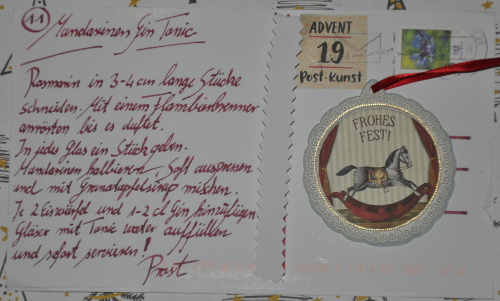 11
Mandarinen Gin Tonic
Rosmarin in 3-4 cm lange Stücke
schneiden. Mit einem Flambierbrenner
anrösten bis es duftet.
In jedes Glas ein Stück geben.
Mandarinen halbieren. Saft auspressen
und mit Granatapfelsirup mischen.
Je 2 Eiswürfel und 1-2 cl Gin hinzufügen.
Gläser mit Tonic water auffüllen
und sofort servieren!
Prost
ADVENT
19
Post·Kunst
FROHES
FEST!